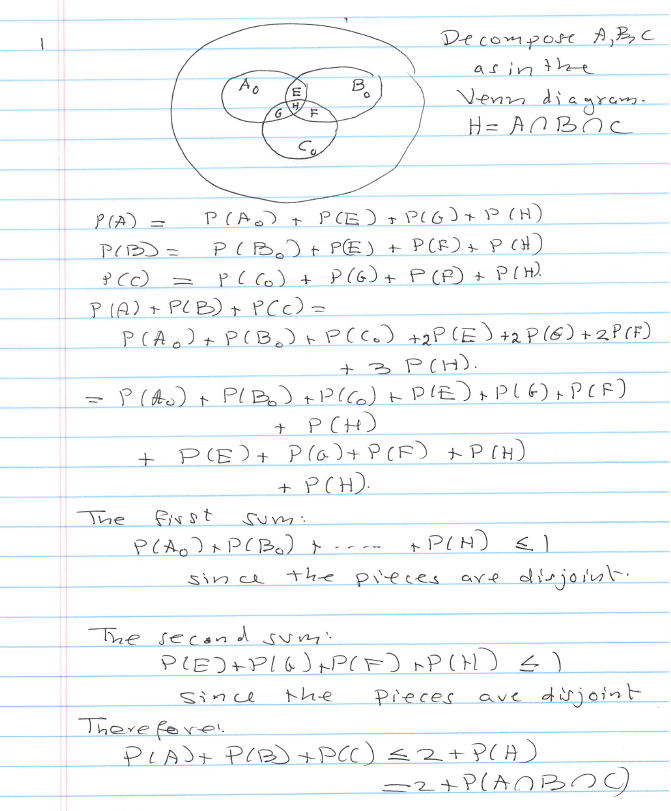 1
Decompose A, B, C
as in the
Venn diagram.
H = A∩B∩C
A₀ E B₀
H
G F
C₀
P(A) = P(A₀) + P(E) + P(G) + P(H)
P(B) = P(B₀) + P(E) + P(F) + P(H)
P(C) = P(C₀) + P(G) + P(F) + P(H).
P(A) + P(B) + P(C) =
P(A₀) + P(B₀) + P(C₀) + 2P(E) + 2P(G) + 2P(F)
+ 3 P(H).
= P(A₀) + P(B₀) + P(C₀) + P(E) + P(G) + P(F)
+ P(H)
+ P(E) + P(G) + P(F) + P(H)
+ P(H).
The first sum:
P(A₀) + P(B₀) + ---- + P(H) ≤ 1
since the pieces are disjoint.
The second sum:
P(E) + P(G) + P(F) + P(H) ≤ 1
since the pieces are disjoint
Therefore:
P(A) + P(B) + P(C) ≤ 2 + P(H)
= 2 + P(A∩B∩C)